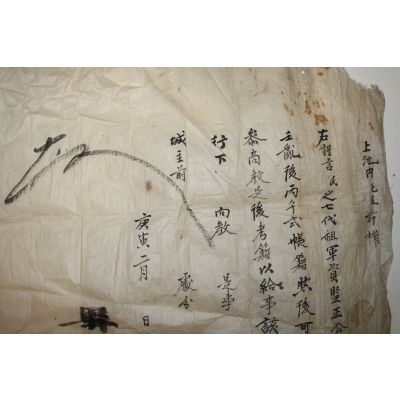 上池內化民許
右謹言民之七代祖軍資監正公
壬亂後丙午式帳籍然後可
叅商敎是後考籍以給事該
行下 向敎 是事
城主前 處分
庚寅二月 日